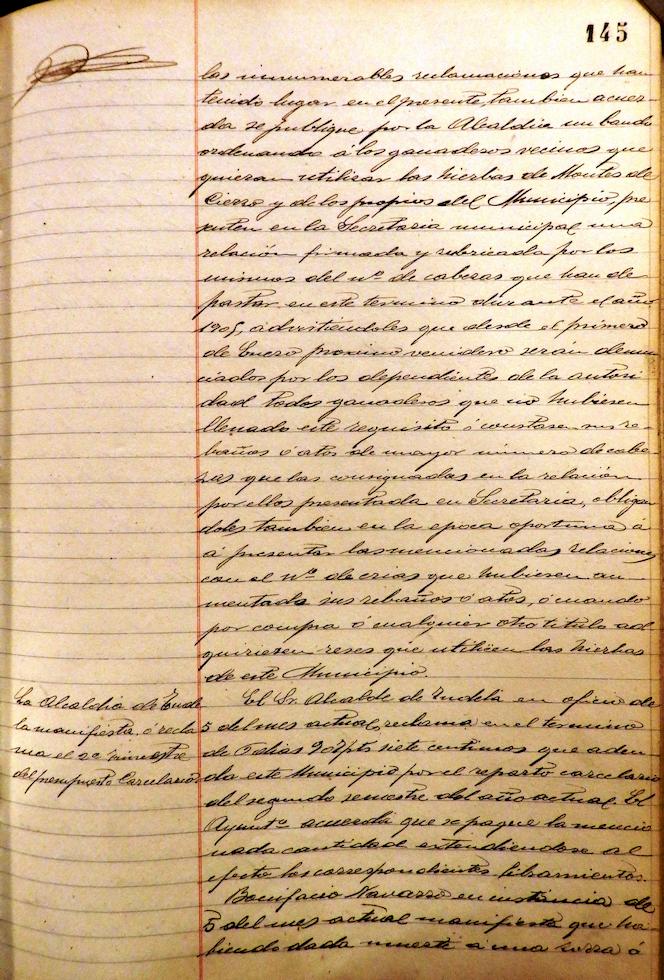 145
las innumerables reclamaciones que han
tenido lugar en el presente, tambien acuer-
da se publique por la Alcaldia un bando
ordenando á los ganaderos vecinos que
quieran utilizar las hierbas de Montes de
Cierzo y de los propios del Municipio, pre
senten en la Secretaria municipal una
relación firmada y rubricada por los
mismos del nº de cabezas que han de
pastar en este termino durante el año
1905, advertiendoles que desde el primero
de Enero proximo venidero serán denun
ciados por los dependientes de la autori
dad todos ganaderos que no hubiesen
llenado este requisito ó constasen sus re-
baños ó atos de mayor numero de cabe
zas que las consignadas en la relación
por ellos presentada en Secretaria, obligan
doles tambien en la epoca oportuna á
á presentar las mencionadas relaciones
con el Nº de crias que hubiesen au-
mentado sus rebaños ó atos, ó cuando
por compra ó cualquier otro titulo ad
quiriesen reses que utilicen las hierbas
de este Municipio.
La Alcaldia de Tude
la manifiesta, ó recla
ma el 2º trimestre
del presupuesto Carcelario
El Sr. Alcalde de Tudela en oficio de
5 del mes actual, reclama en el termino
de 6 dias 207 pts siete centimos que aden-
da este Municipio por el reparto carcelario
del segundo semestre del año actual. El
Ayuntº acuerda que se pague la mencio
nada cantidad extendiendose al
efecto los correspondientes libramientos.
Bonifacio Navarro en instancia de
5 del mes actual manifiesta que ha-
biendo dado muerte a una zorra ó